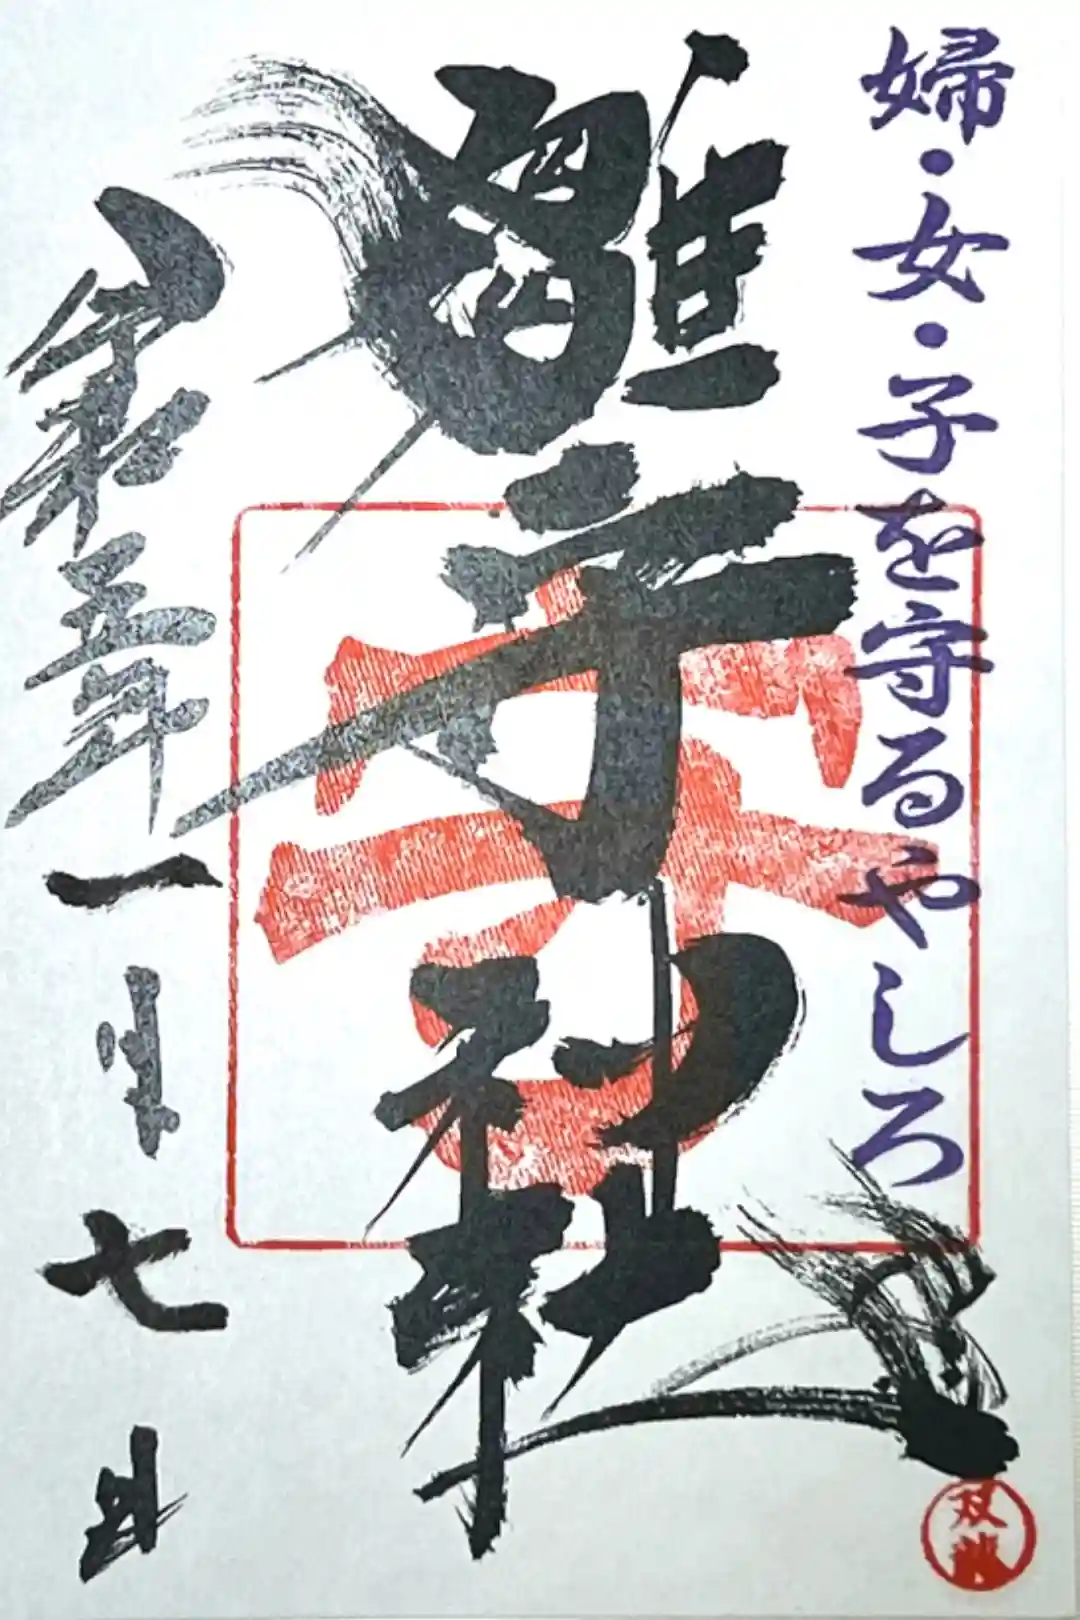 婦・女・子を守るやしろ
雛守神社
令和五年一月七日
双